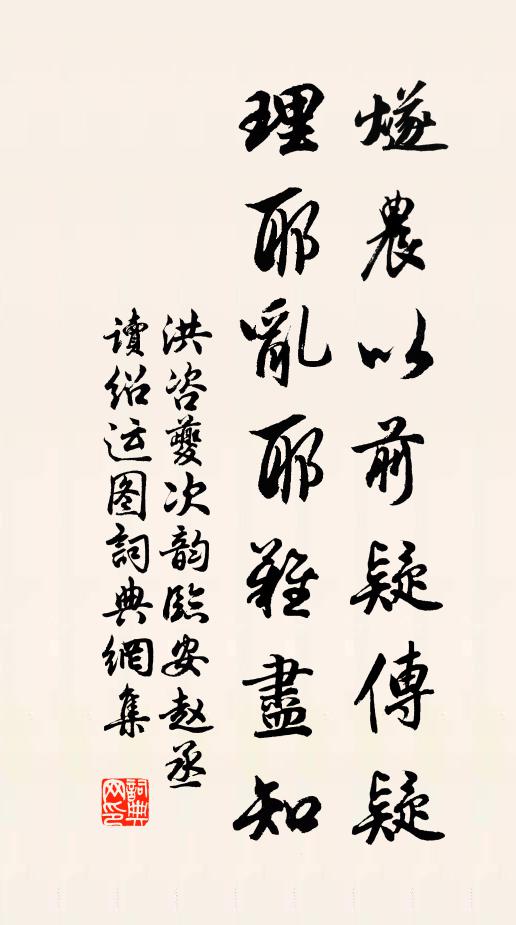 燧農以前疑傳疑
理耶亂耶難盡知
洪咨夔次韵臨安赵丞
读绍运图詞典網集
詞典网印